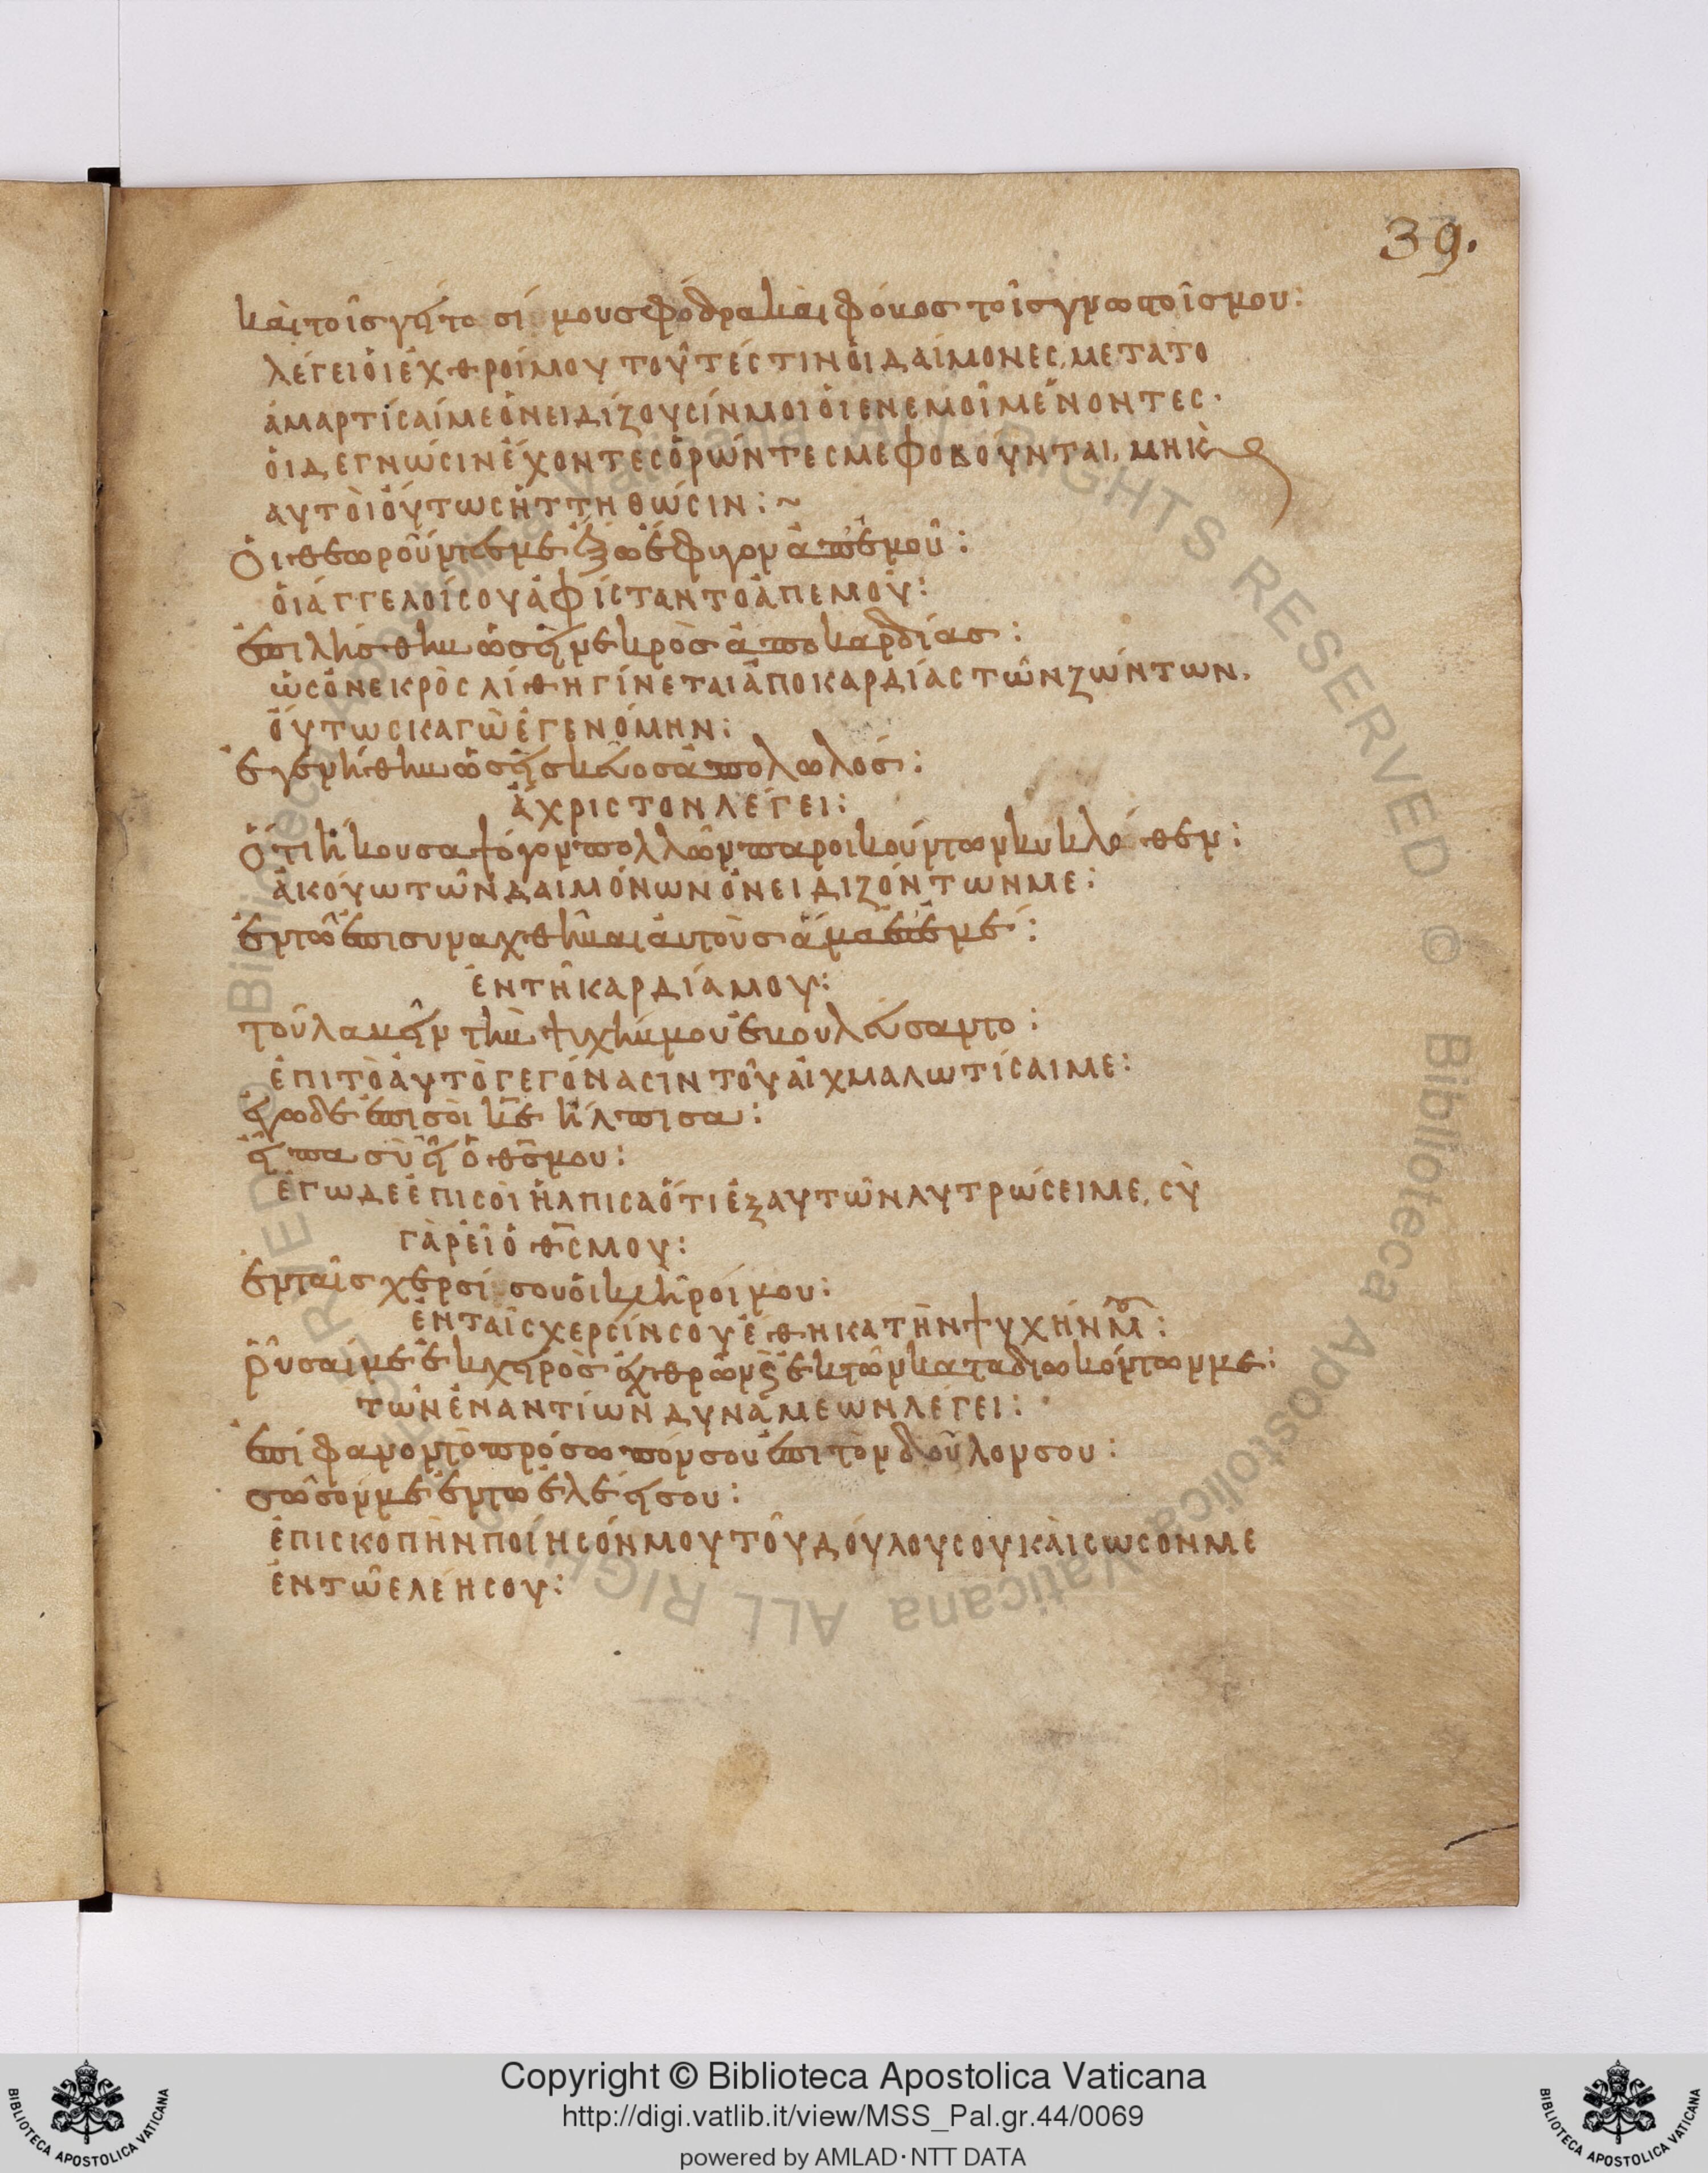 39.
καὶ τοῖς γείτοσί μου σφόδρα καὶ φόβος τοῖς γνωστοῖς μου:
λέγει ὁι ἐχθροί μου τουτέστιν ὁι δαίμονες, μετα το
ἁμαρτίσαί με ὀνειδίζουσίν μοι ὁι εν εμοὶ μένοντες·
ὁι δε γνώσιν ἔχοντες ὁρώντες με φοβοῦνται, μη κὲ
αυτὸι ὁύτως ἡττηθώσιν: ~
Ὁι θεωροῦντες με ἔξω ἔφυγον ἀπ' ἐμοῦ:
ὁι άγγελοί σου ἀφίσταντο ἀπ εμοῦ:
ἐπιλήσθην ὡσεὶ νεκρὸς ἀπο καρδίας:
ὡς ὁ νεκρὸς λίθη γίνεται ἀπο καρδίας τῶν ζώντων.
ὁύτως καγὼ ἐγενόμην:
ἐγενήθην ὡσεὶ σκεῦος ἀπολωλός:
ἄχριστον λέγει:
Ὅτι ἤκουσα ψόγον πολλῶν παροικούντων κυκλόθεν:
ἀκούω τῶν δαιμόνων ὀνειδιζόντων με:
ἐν τῶ ἐπισυναχθῆναι ἀυτοὺς ἅμα ἐπ' ἐμέ:
ἐν τῆ καρδία μου:
τοῦ λαβεῖν τὴν ψυχήν μου ἐβουλεύσαντο:
ἐπι τὸ ἀυτὸ γεγόνασιν τοῦ αἰχμαλωτίσαι με:
ἐγω δε ἐπι σοὶ κ̅ε̅ ἤλπισα:
εἶπα σὺ εἶ ὁ θ̅ς̅ μου:
ἐγω δε ἐπι σοὶ ἤλπισα ὅτι ἐξ αυτῶν λυτρώσει με, σὺ
γὰρ εἶ ὁ θ̅ς̅ μου:
ἐν ταῖς χερσί σου ὁι κλῆροί μου:
ἐν ταῖς χερσίν σου ἔθηκα τὴν ψυχήν μ̅:
ῥῦσαί με ἐκ χειρὸς ἐχθρῶν ϗ ἐκ τῶν καταδιωκόντων με:
τῶν ἐναντίων δυνάμεων λέγει:
ἐπίφανον τὸ πρόσωπόν σου ἐπι τὸν δοῦλον σου:
σῶσόν με ἐν τω ἐλέει σου:
ἐπισκοπὴν ποίησόν μου τοῦ δούλου σου κὰι σωσον με
ἐν τῶ ελέη σου:
Copyright © Biblioteca Apostolica Vaticana
http://digi.vatlib.it/view/MSS_Pal.gr.44/0069
powered by AMLAD·NTT DATA
BIBLIOTECA APOSTOLICA VATICANA
BIBLIOTECA APOSTOLICA VATICANA
Biblioteca Apostolica Vaticana ALL RIGHTS RESERVED © Biblioteca Apostolica Vaticana ALL RIGHTS RESERVED ©